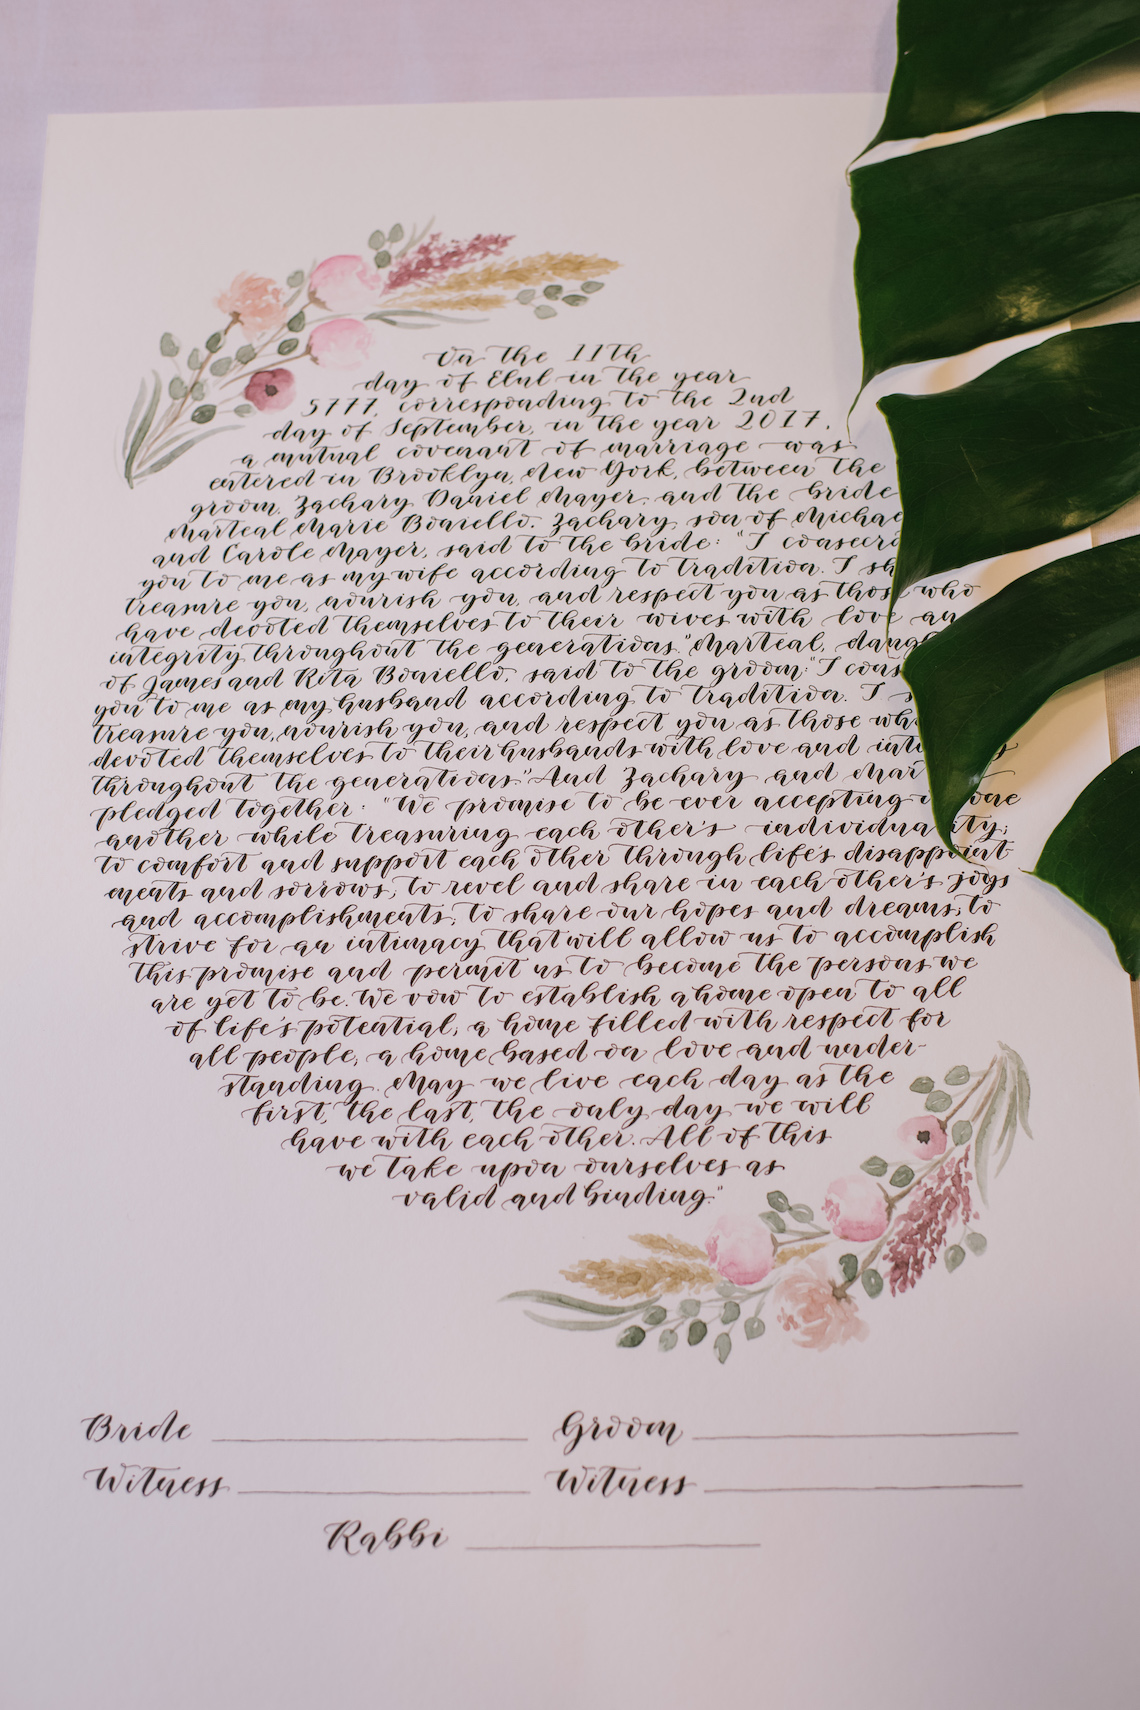 On the 11th
day of Elul in the year
5777, corresponding to the 2nd
day of September, in the year 2017,
a mutual covenant of marriage was
entered in Brooklyn, New York, between the
groom, Zachary Daniel Mayer, and the bride
Marteal Marie Boniello. Zachary, son of Michae
and Carole Mayer, said to the bride: "I consecra
you to me as my wife according to tradition. I sh
treasure you, nourish you, and respect you as those who
have devoted themselves to their wives with love an
integrity throughout the generations." Marteal, daugh
of James and Rita Boniello, said to the groom: "I cons
you to me as my husband according to tradition. I s
treasure you, nourish you, and respect you as those wh
devoted themselves to their husbands with love and inte
throughout the generations." And Zachary and Mar
pledged together: "We promise to be ever accepting one
another while treasuring each other's individuality;
to comfort and support each other through life's disappoint
ments and sorrows; to revel and share in each other's joys
and accomplishments; to share our hopes and dreams; to
strive for an intimacy that will allow us to accomplish
this promise and permit us to become the persons we
are yet to be. We vow to establish a home open to all
of life's potential; a home filled with respect for
all people; a home based on love and under-
standing. May we live each day as the
first, the last, the only day we will
have with each other. All of this
we take upon ourselves as
valid and binding."
Bride Groom
Witness Witness
Rabbi